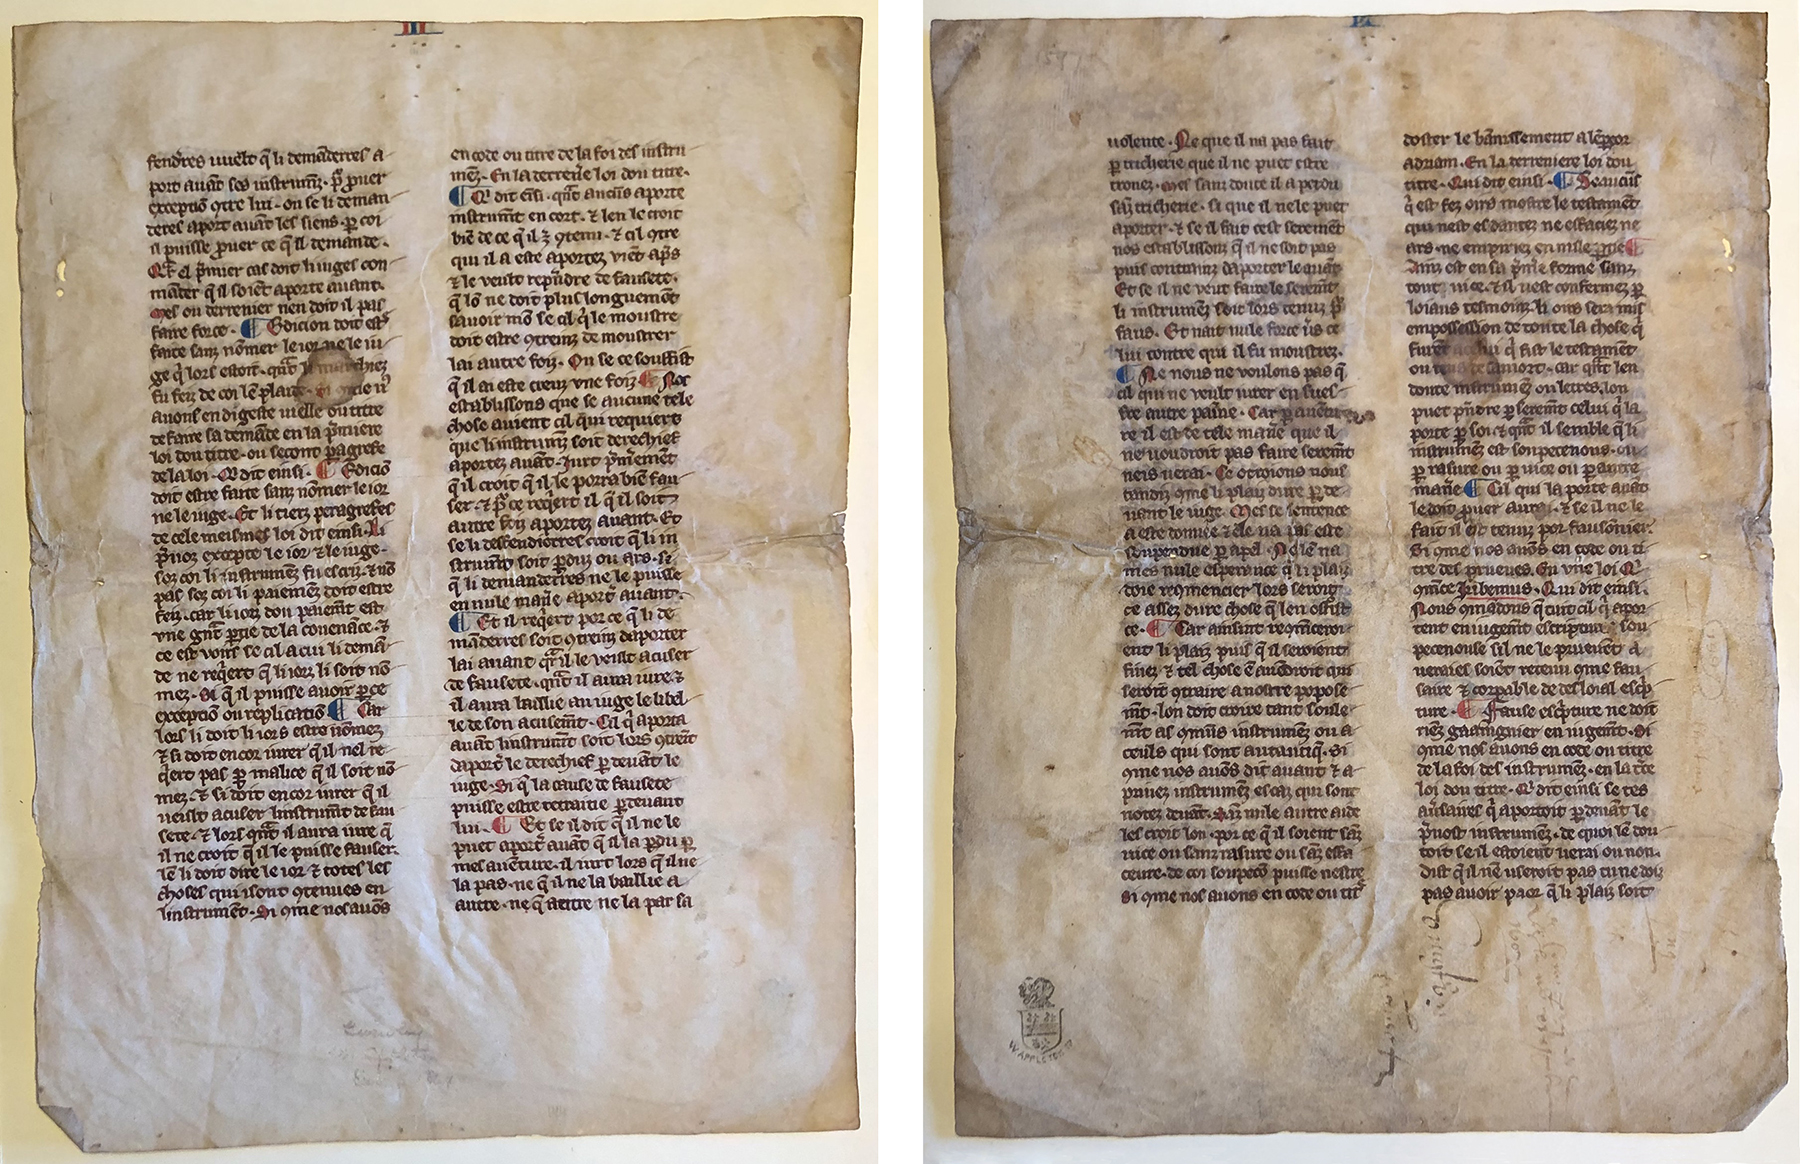 III
fendrres vuelt q̃ li demãderres a
port auãt ses instrumz̃. pͬ ꝓuer
exceptiõ ꝯtre lui. ou se li deman
deres aport auãt les siens. ꝑ coi
il puisse ꝓuer ce q̃ il demande.
El p̃mier cas doit li iuges con
mãder q̃ il soiẽt aporte auant.
Mes ou derrenier nen doit il pas
faire force. ¶ Edicion doit est̾
faite sanz nõmer le ior ne le iu
ge q̃ lors estoit. qñt li
fu fez de coi lẽ plaide. Si
auons en digeste uielle ou titre
de faire sa demãde en la p̃miere
loi dou titre. ou second ꝑagrefe
de la loi. Q̾ dit einsi. ¶ Ediciõ
doit estre faite sanz nõmer le ior
ne le iuge. Et li tierz peragrefes
de cele meismes loi dit einsi. Li
p̃uoz excepte le ior ⁊ le iuge.
soz coi li instrumẽz fu escriz. ⁊ nõ
pas soz coi li paiemẽz doit estre
fez. car li iorz dou paiemẽt est
vne gñt ꝑtie de la couenãce. ⁊
ce est voirs se cil a cui li demã
de ne req̃ert q̃ li iorz li soit nõ
mez. Si q̃ il puisse auoir ꝑ ce
exceptiõ ou replicatiõ ¶ Car
lors li doit li iors estre nõmez
⁊ si doit encor iurer q̃ il nel re
q̃ert pas ꝑ malice q̃ il soit nõ
mez. ⁊ si doit encor iurer q̃ il
ueult acuser linstrumt̃ de fau
sete. ⁊ lors qñt il aura iure q̃
il ne croit q̃ il le puisse fauser.
lẽ li doit dire le ior ⁊ totes les
choses qui i sont ꝯtenues en
linstrumẽt. Si ꝯme nos auõs
en code ou titre de la foi des instru
mẽz. En la derreñe loi dou titre.
¶ Q̾ dit eñsi. qñt aucũs aporte
instrumt̃ en cort. ⁊ len le croit
biẽ de ce q̃ il ꝯtenu. ⁊ cil ꝯtre
qui il a este aportez viẽt ap̃s
⁊ le veult rep̃ndre de fausete.
q̃ lõ ne doit plus longuemẽt
sauoir mõ se cil q̃ le moustre
doit estre ꝯtreinz de moustrer
lai autre foiz. Ou se ce souffist
q̃ il ai este creuz vne foiz ¶ Nos
establissons que se aucune tele
chose auient cil qui requiert
que li instrumz̃ soit derechief
aportez auãt. Iurt p̃miremẽt
q̃ il croit q̃ il le porra biẽ fau
ser. ⁊ pͬ ce req̃ert il q̃ il soit
autre foiz aportez auant. Et
se li deffendierres croit q̃ li in
strumz̃ soit ꝑduz ou ars. si
q̃ li demanderres ne le puisse
en nule mañe aport̾ auant.
¶ Et il req̃ert por ce q̃ li de
mãderres soit ꝯtreinz daporter
lai auant qñt il le veult acuser
de fausete. qñt il aura iure ⁊
il aura baillie au iuge le libel
le de son acusemt̃. Cil q̃ aporta
auãt linstrumt̃ soit lors ꝯtreĩt
daport̾ le derechief ꝑ deuãt le
iuge. Si q̃ la cause de fausete
puisse estre retraitie ꝑ deuant
lui. ¶ Et se il dit q̃ il ne le
puet aport̾ auãt q̃ il la ꝑdu ꝑ
mesauẽture. il iurt lors q̃ il ne
la pas. ne q̃ il ne la baillie a
autre. ne q̃ autre ne la par sa
uolente. Ne que il na pas fait
ꝑ tricherie que il ne puet estre
trouez. Mes sanz doute il a perdu
sañz tricherie. si que il ne le puet
aporter. ⁊ se il fait cest seremẽt
nos establissons q̃ il ne soit pas
puis contrainz daporter le auãt
Et se il ne veut faire le seremt̃
li instrumẽz soit lors tenuz pͬ
faus. Et nait nule force u̾s ce
lui contre qui il fu moustrez.
¶ Ne nous ne voulons pas q̃
cil qui ne veult iurer en sues
fre autre paine. Car ꝑ auẽtu
re il est de tele mañe que il
ne uoudroit pas faire seremt̃
neis uerai. Ce otroions nous
tandiz ꝯme li plaiz dure ꝑ de
uant le iuge. Mes se sentence
a este donnee ⁊ ele na pas este
soupendue ꝑ apel. N̾ lẽ na
mes nule esperance q̃ li plaiz
doie reꝯmencier lors seroit
ce assez dure chose q̃ len ossist
ce. ¶ Car ainsint reꝯmceroi
ent li plaiz puis q̃ il seroient
finez ⁊ tel chose ẽ auẽdroit qui
seroit ꝯtraire a nostre propose
mt̃. lon doit croire tant soule
mt̃ as ꝯmũs instrumẽz ou a
ceuls qui sont autantiq̃. Si
ꝯme nos auõs dit auant ⁊ a
priuez instrumẽz es caz qui sont
notez deuãt. Sãz nule autre aide
les croit lon. por ce q̃ il soient sãz
uice ou sanz rasure ou sãz effa
ceure. de coi soupeco puisse nestre
Si ꝯme nos auons en code ou titr̾
doster le banissement a lẽꝑor
adrian. En la derreniere loi dou
titre. Qui dit einsi. ¶ Se aucũs
q̃ est fez oirs mostre le testamẽt
qui nest esdantez ne effaciez ne
ars. ne empiriez en nule ꝑtie ¶
Ainz est en sa p̃mře forme sanz
tout uice. ⁊ il i est confermez ꝑ
loiaus tesmoinz li oirs sera mis
em possession de toute la chose q̃
furẽt a celui q̃ fist le testamẽt
ou tens de sa mort. car qñt len
doute instrumẽz ou letres. lon
puet p̃ndre ꝑ seremt̃ celui q̃ la
porte ꝑ soi. ⁊ qñt il semble q̃ li
instrumẽz est soupecenous. ou
ꝑ rasure ou ꝑ uice ou ꝑ autre
mañe ¶ Cil qui la porte auãt
le doit ꝓuer a urai. ⁊ se il ne le
fait il est tenuz por fausonier.
Si ꝯme nos auõs en code ou ti
tre des prueues. En vne loi Q̾
ꝯmẽce Iubemus. Qui dit einsi.
Nous ꝯmãdons q̃ tuit cil q̃ apor
tent en iugemt̃ escripture sou
pecenouse sil ne le prueuent a
ueraies soiẽt retenu ꝯme fau
saire ⁊ corpable de desloial esc̾p
ture. ¶ Fause esc̾pture ne doit
riẽz gaaingnier en iugemt̃. Si
ꝯme nos auons en code ou titre
de la foi des instrumẽz. en la t̾ce
loi dou titre. Q̾ dit einsi se tes
au̾saires q̃ aportoit ꝑ deuãt le
p̃uost instrumẽz. de quoi lẽ dou
toit se il estoient uerai ou non.
dist q̃ il nẽ useroit pas tu ne doiz
pas auoir paor q̃ li plaiz soit
W APPLETON